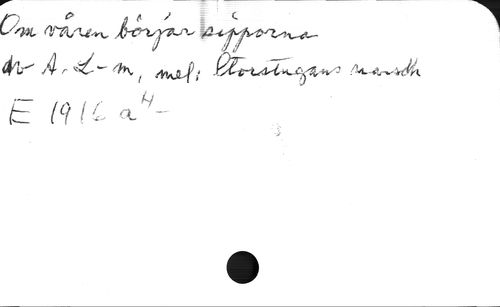 Om våren börjar sipporna
av A. L-m, mel: Storstugans
E 1916 a 4-